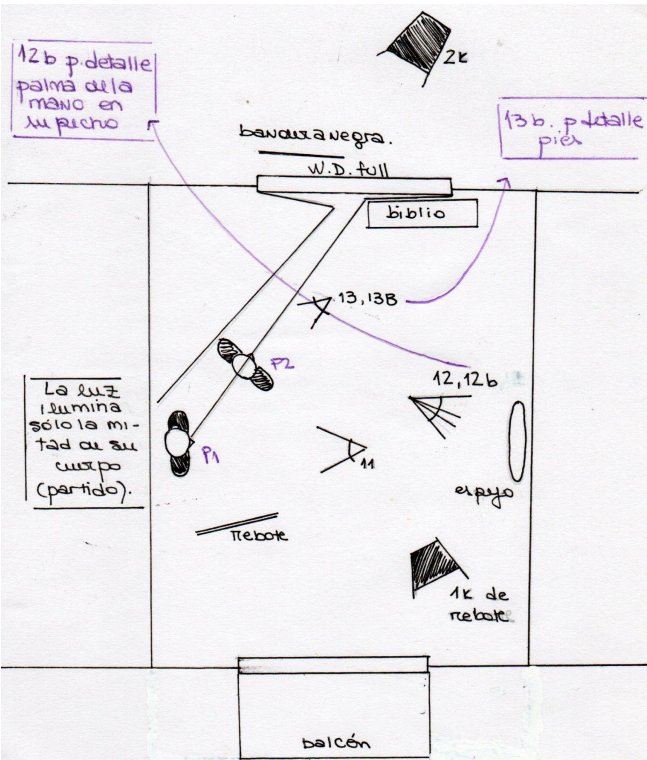 12b p.detalle
palma de la
mano en
su pecho
2K
13b. p detalle
pies
bandera negra.
W.D. full
biblio
13,13B
P2
12,12b
La luz
ilumina
sólo la mi-
tad de su
cuerpo
(partido).
P1
11
espejo
rebote
1K de
rebote
balcón